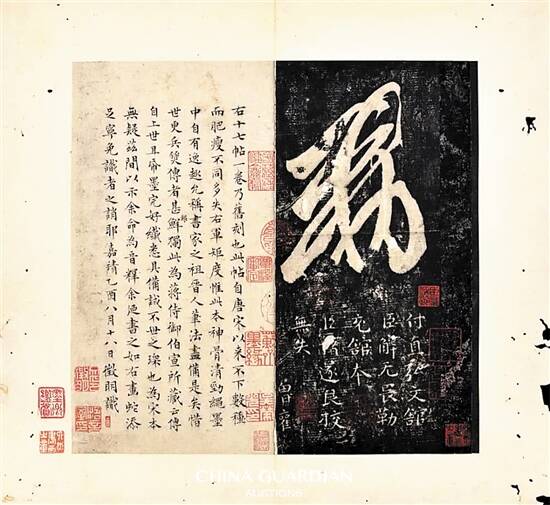 付直弘文館
臣解无畏勒
充館本
臣褚遂良校
無失
右十七帖一卷乃舊刻也此帖自唐宋以來不下數種
而肥瘦不同多失右軍矩度惟此本神骨清勁繩墨
中自有逸趣允稱書家之祖晉人筆法盡備是矣惜
世更兵燹傳者甚鮮獨此為蔣侍御伯宣所藏云傳
自上世且帋墨完好纖悉具備誠不世之璨也為宋本
無疑茲間以示余命為音釋余漫書之如右畫蛇添
足寧免識者之誚耶嘉靖乙酉八月十八日徵明識
CHINA GUARDIAN
AUCTIONS